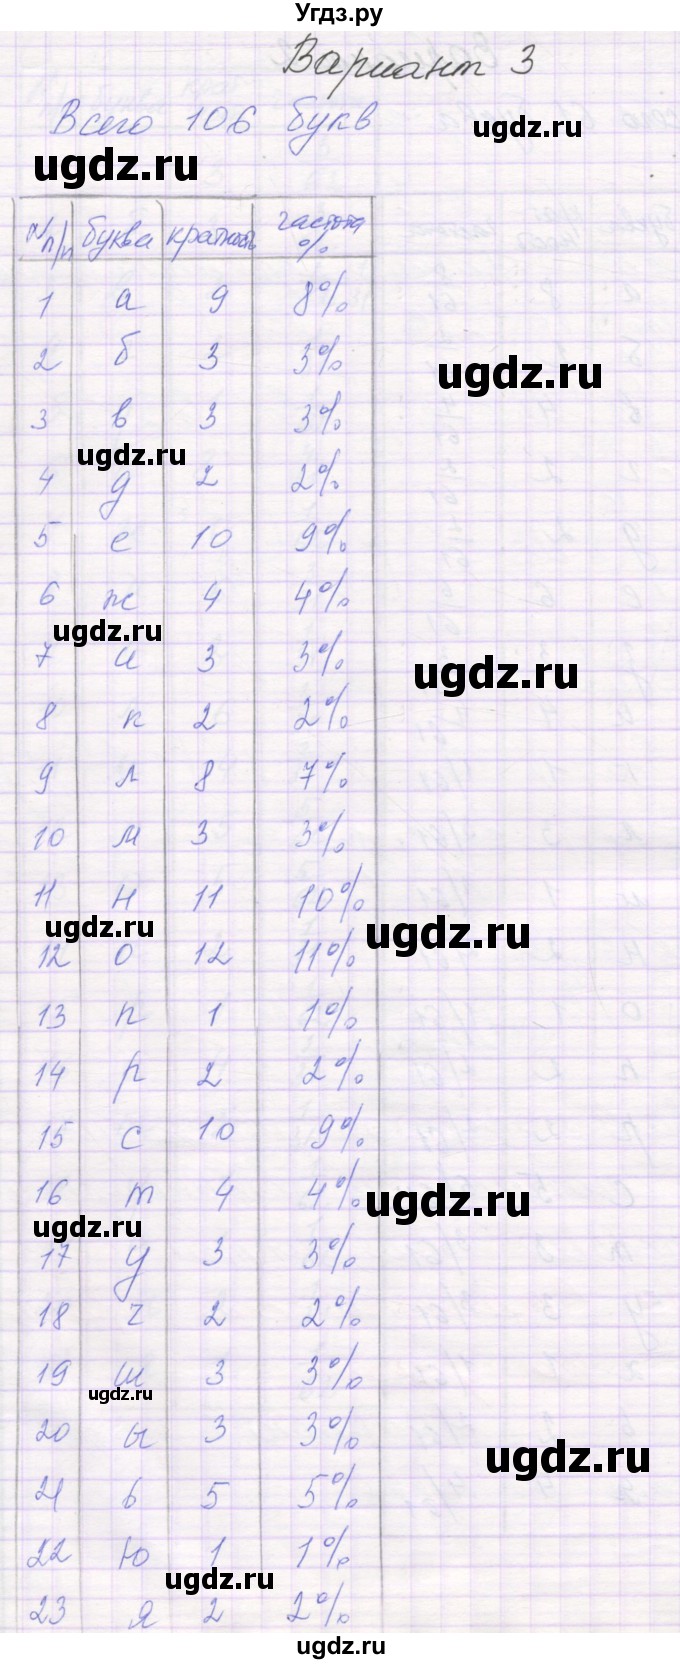 Угдз.ру
Вариант 3
Всего 106 букв
ugdz.ru
ugdz.ru
№ п/п буква кратность частота %
1 а 9 8%
2 б 3 3%
ugdz.ru
3 в 3 3%
ugdz.ru
4 д 2 2%
5 е 10 9%
6 ж 4 4%
ugdz.ru
7 и 3 3%
ugdz.ru
8 к 2 2%
9 л 8 7%
10 м 3 3%
11 н 11 10%
ugdz.ru
ugdz.ru
12 о 12 11%
13 п 1 1%
14 р 2 2%
15 с 10 9%
16 т 4 4%
ugdz.ru
ugdz.ru
17 у 3 3%
18 ч 2 2%
19 ш 3 3%
ugdz.ru
20 ы 3 3%
ugdz.ru
21 ь 5 5%
22 ю 1 1%
ugdz.ru
23 я 2 2%
ugdz.ru